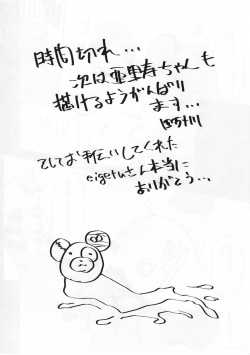 時間切れ…
次は亜里寿ちゃんも
描けるようがんばり
ます…
てしてお手伝いしてくれた
eigetuさん本当に
ありがとう…